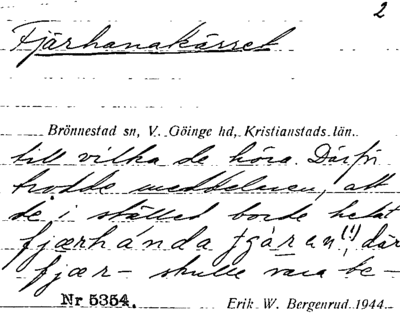 2
Fjärhanakärret
Brönnestad sn, V. Göinge hd, Kristianstads län.
till vilka de höra. Därför
trodde meddelaren, att
de i stället borde hetat
fjærhánda tgáran(!), där
fjær- skulle vara be-
Nr 5354. Erik W. Bergenrud 1944